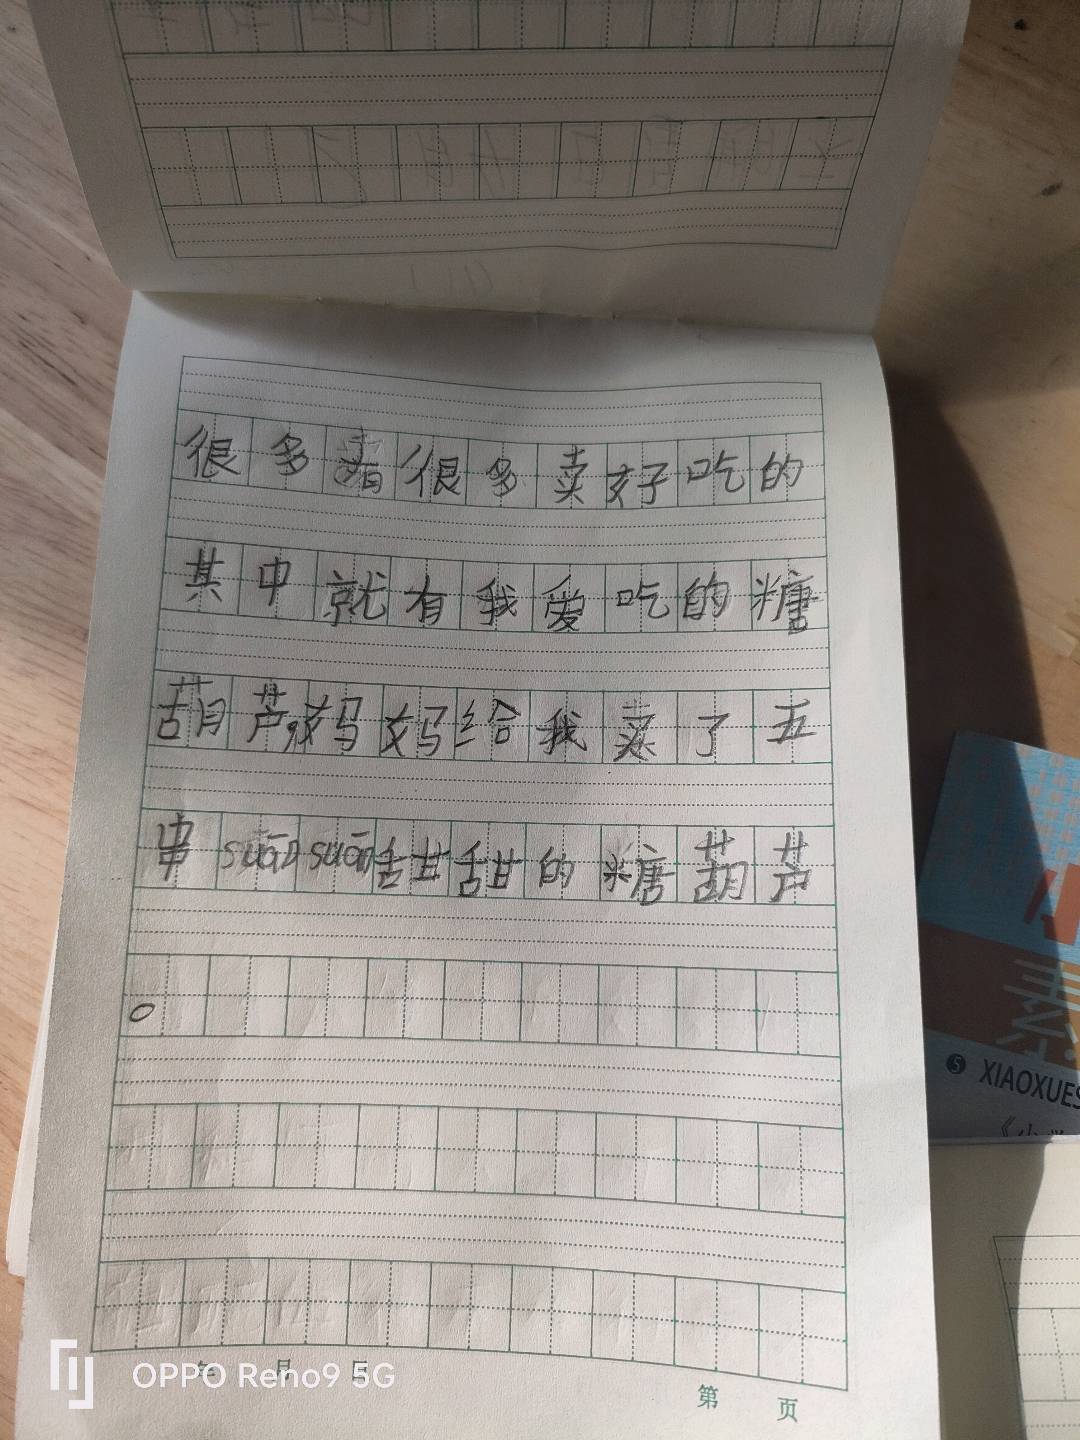 很多卖很多卖好吃的
其中就有我爱吃的糖
葫芦,妈妈给我买了五
串suānsuān甜甜的糖葫芦
。
年 月 日
第 页
OPPO Reno9 5G
5 XIAOXUES